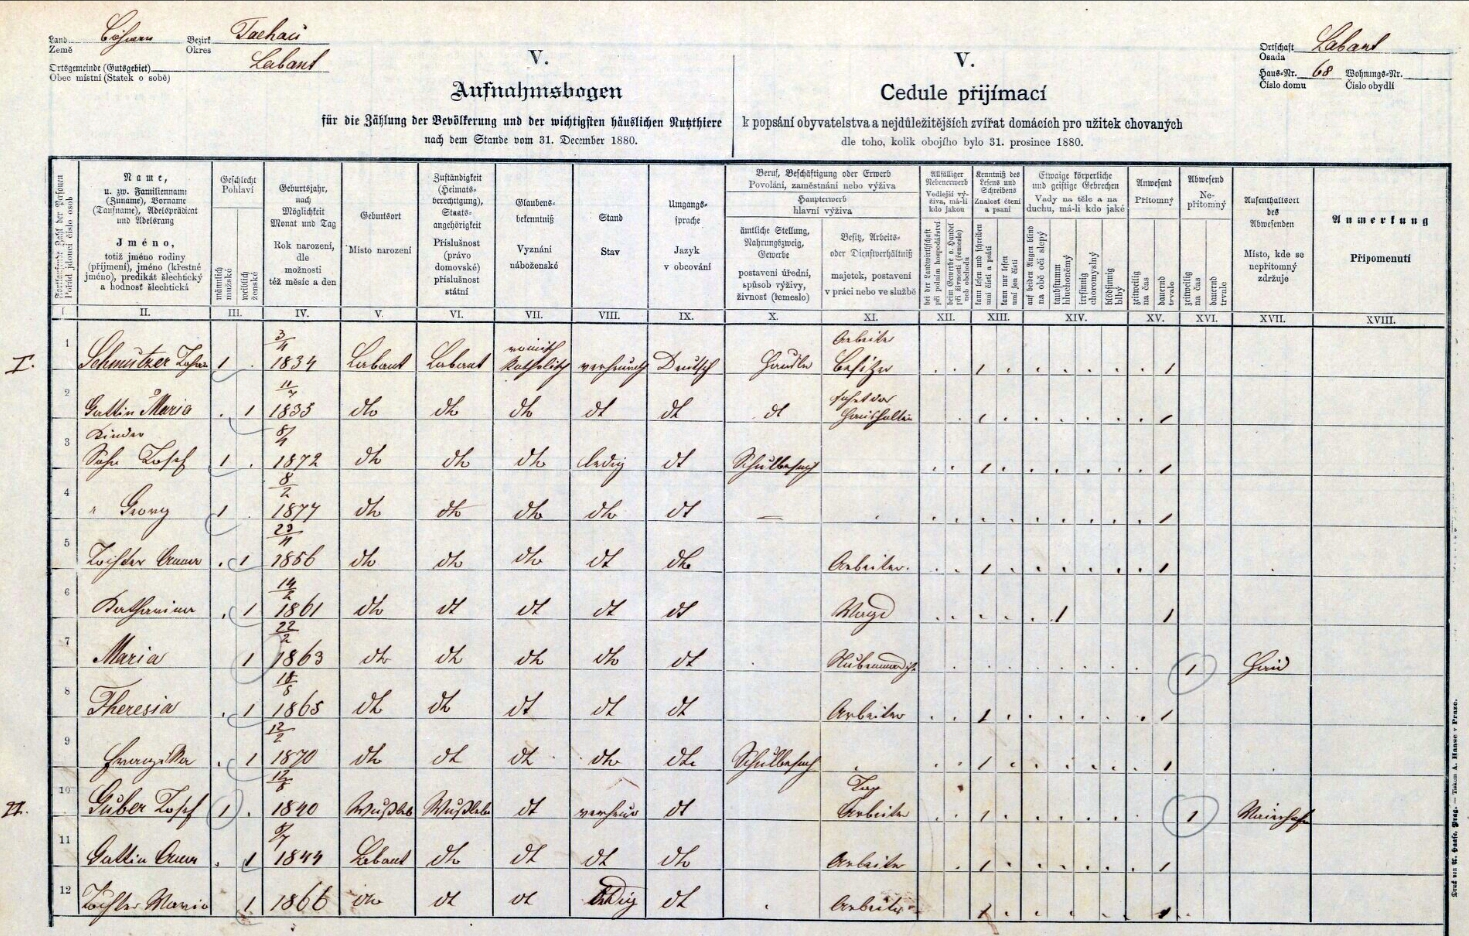 Land Böhmen Bezirk Tachau
Země Okres
Ortsgemeinde (Gutsgebiet) Labant
Obec místní (Statek o sobě)
V.
Aufnahmsbogen
für die Zählung der Bevölkerung und der wichtigsten häuslichen Nutzthiere
nach dem Stande vom 31. December 1880.
V.
Cedule přijímací
k popsání obyvatelstva a nejdůležitějších zvířat domácích pro užitek chovaných
dle toho, kolik obojího bylo 31. prosince 1880.
Ortschaft Labant
Osada
Haus-Nr. 68 Wohnungs-Nr.
Číslo domu Číslo obydlí
Name,
u. zw. Familienname
(Zuname), Vorname
(Taufname), Adelsprädicat
und Adelsrang
Jméno,
totiž jméno rodiny
(příjmení), jméno (křestné
jméno), predikát šlechtický
a hodnost šlechtická
Geschlecht
Pohlaví
männlich
mužské
weiblich
ženské
Geburtsjahr,
nach
Möglichkeit
Monat und Tag
Rok narození,
dle
možnosti
též měsíc a den
Geburtsort
Místo narození
Zuständigkeit
(Heimats-
berechtigung),
Staats-
angehörigkeit
Příslušnost
(právo
domovské)
příslušnost
státní
Glaubens-
bekenntniß
Vyznání
náboženské
Stand
Stav
Umgangs-
sprache
Jazyk
v obcování
Beruf, Beschäftigung oder Erwerb
Povolání, zaměstnání nebo výživa
Haupterwerb
hlavní výživa
ämtliche Stellung,
Nahrungszweig,
Gewerbe
postavení úřední,
spůsob výživy,
živnost (řemeslo)
Besitz, Arbeits-
oder Dienstverhältniß
majetek, postavení
v práci nebo ve službě
Allfälliger
Nebenerwerb
Vedlejší vý-
živa, má-li
kdo jakou
Kenntniß des
Lesens und
Schreibens
Znalost čtení
a psaní
Etwaige körperliche
und geistige Gebrechen
Vady na těle a na
duchu, má-li kdo jaké
Anwesend
Přítomný
zeitweilig
na čas
dauernd
trvale
Abwesend
Ne-
přítomný
zeitweilig
na čas
dauernd
trvale
Aufenthaltsort
des
Abwesenden
Místo, kde se
nepřítomný
zdržuje
Anmerkung
Připomenutí
I. II. III. IV. V. VI. VII. VIII. IX. X. XI. XII. XIII. XIV. XV. XVI. XVII. XVIII.
I. 1 Schmutzer 1 3/11 1834 Labant Labant römisch katholisch Deutsch Arbeiter Besitzer 1 1
2 Gattin Maria 1 11/7 1833 dto dto dto dt dt dt 1 1
Kinder
3 Sohn Josef 1 8/4 1872 dto dto dto ledig dt Schulbesuch 1 1
4 " Georg 1 8/2 1877 dto dto dto dto dt 1
5 Tochter Anna 1 23/11 1856 dto dto dto dt dto Arbeiter 1 1
6 Katharina 1 14/2 1861 dto dt dt dt dt Magd 1 1
7 Maria 1 22/2 1863 dto dt dto dto dt 1 Haid
8 Theresia 1 18/8 1865 dt dto dt dt dt Arbeiter 1 1
9 Franziska 1 12/2 1870 dto dt dt dto dto Schulbesuch 1 1
II. 10 Guber Josef 1 12/8 1840 dt Tag Arbeiter 1 1
11 Gattin Anna 1 9/7 1844 Labant dto dt dt dto Arbeiter 1 1
12 Tochter Maria 1 1866 dto dt dt ledig dt Arbeiter 1 1